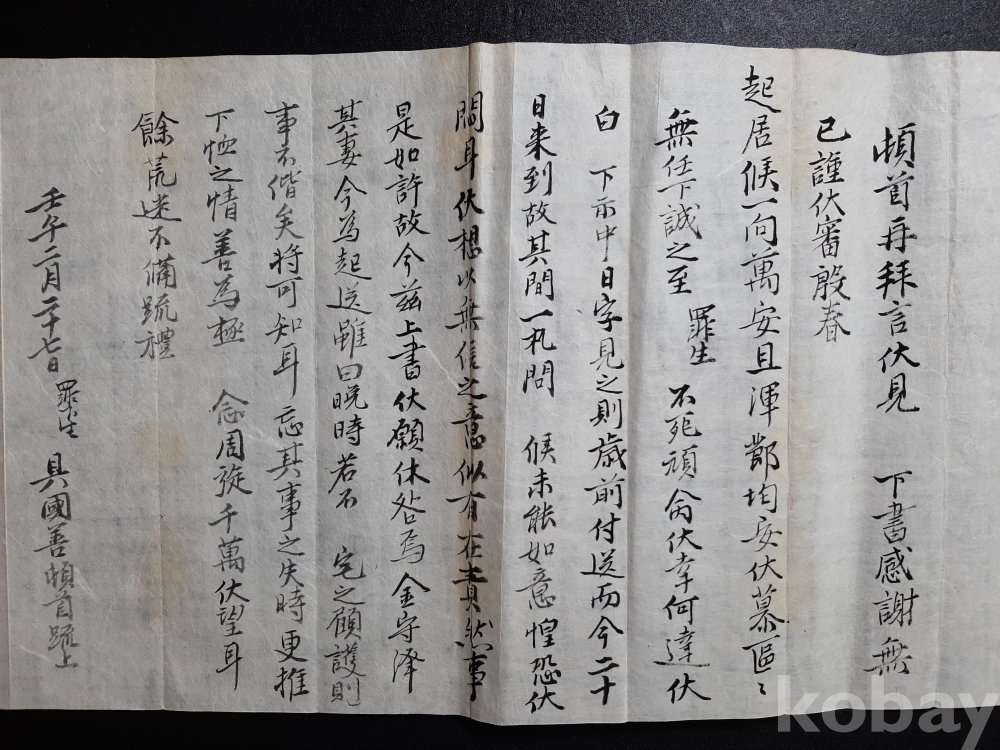 頓首再拜言伏見　下書感謝無
已謹伏審殷春
起居候一向萬安且渾節均安伏慕區〻
無任下誠之至　罪生　不死頑侖伏幸何達伏
白　下示中日字見之則歲前付送而今二十
日來到故其間一札問　候未能如意惶恐伏
悶耳伏想以無信之意似有在責然事
是如許故今玆上書伏願休咎焉金守澤
其妻今為起送雖曰晩時若不　宅之顧護則
事不偕矣將可知耳　忘其事之失時更推
下恤之情善為極　念周旋千萬伏望耳
餘荒迷不備疏禮
壬午二月二十七日　罪生　具國善頓首疏上
kobay